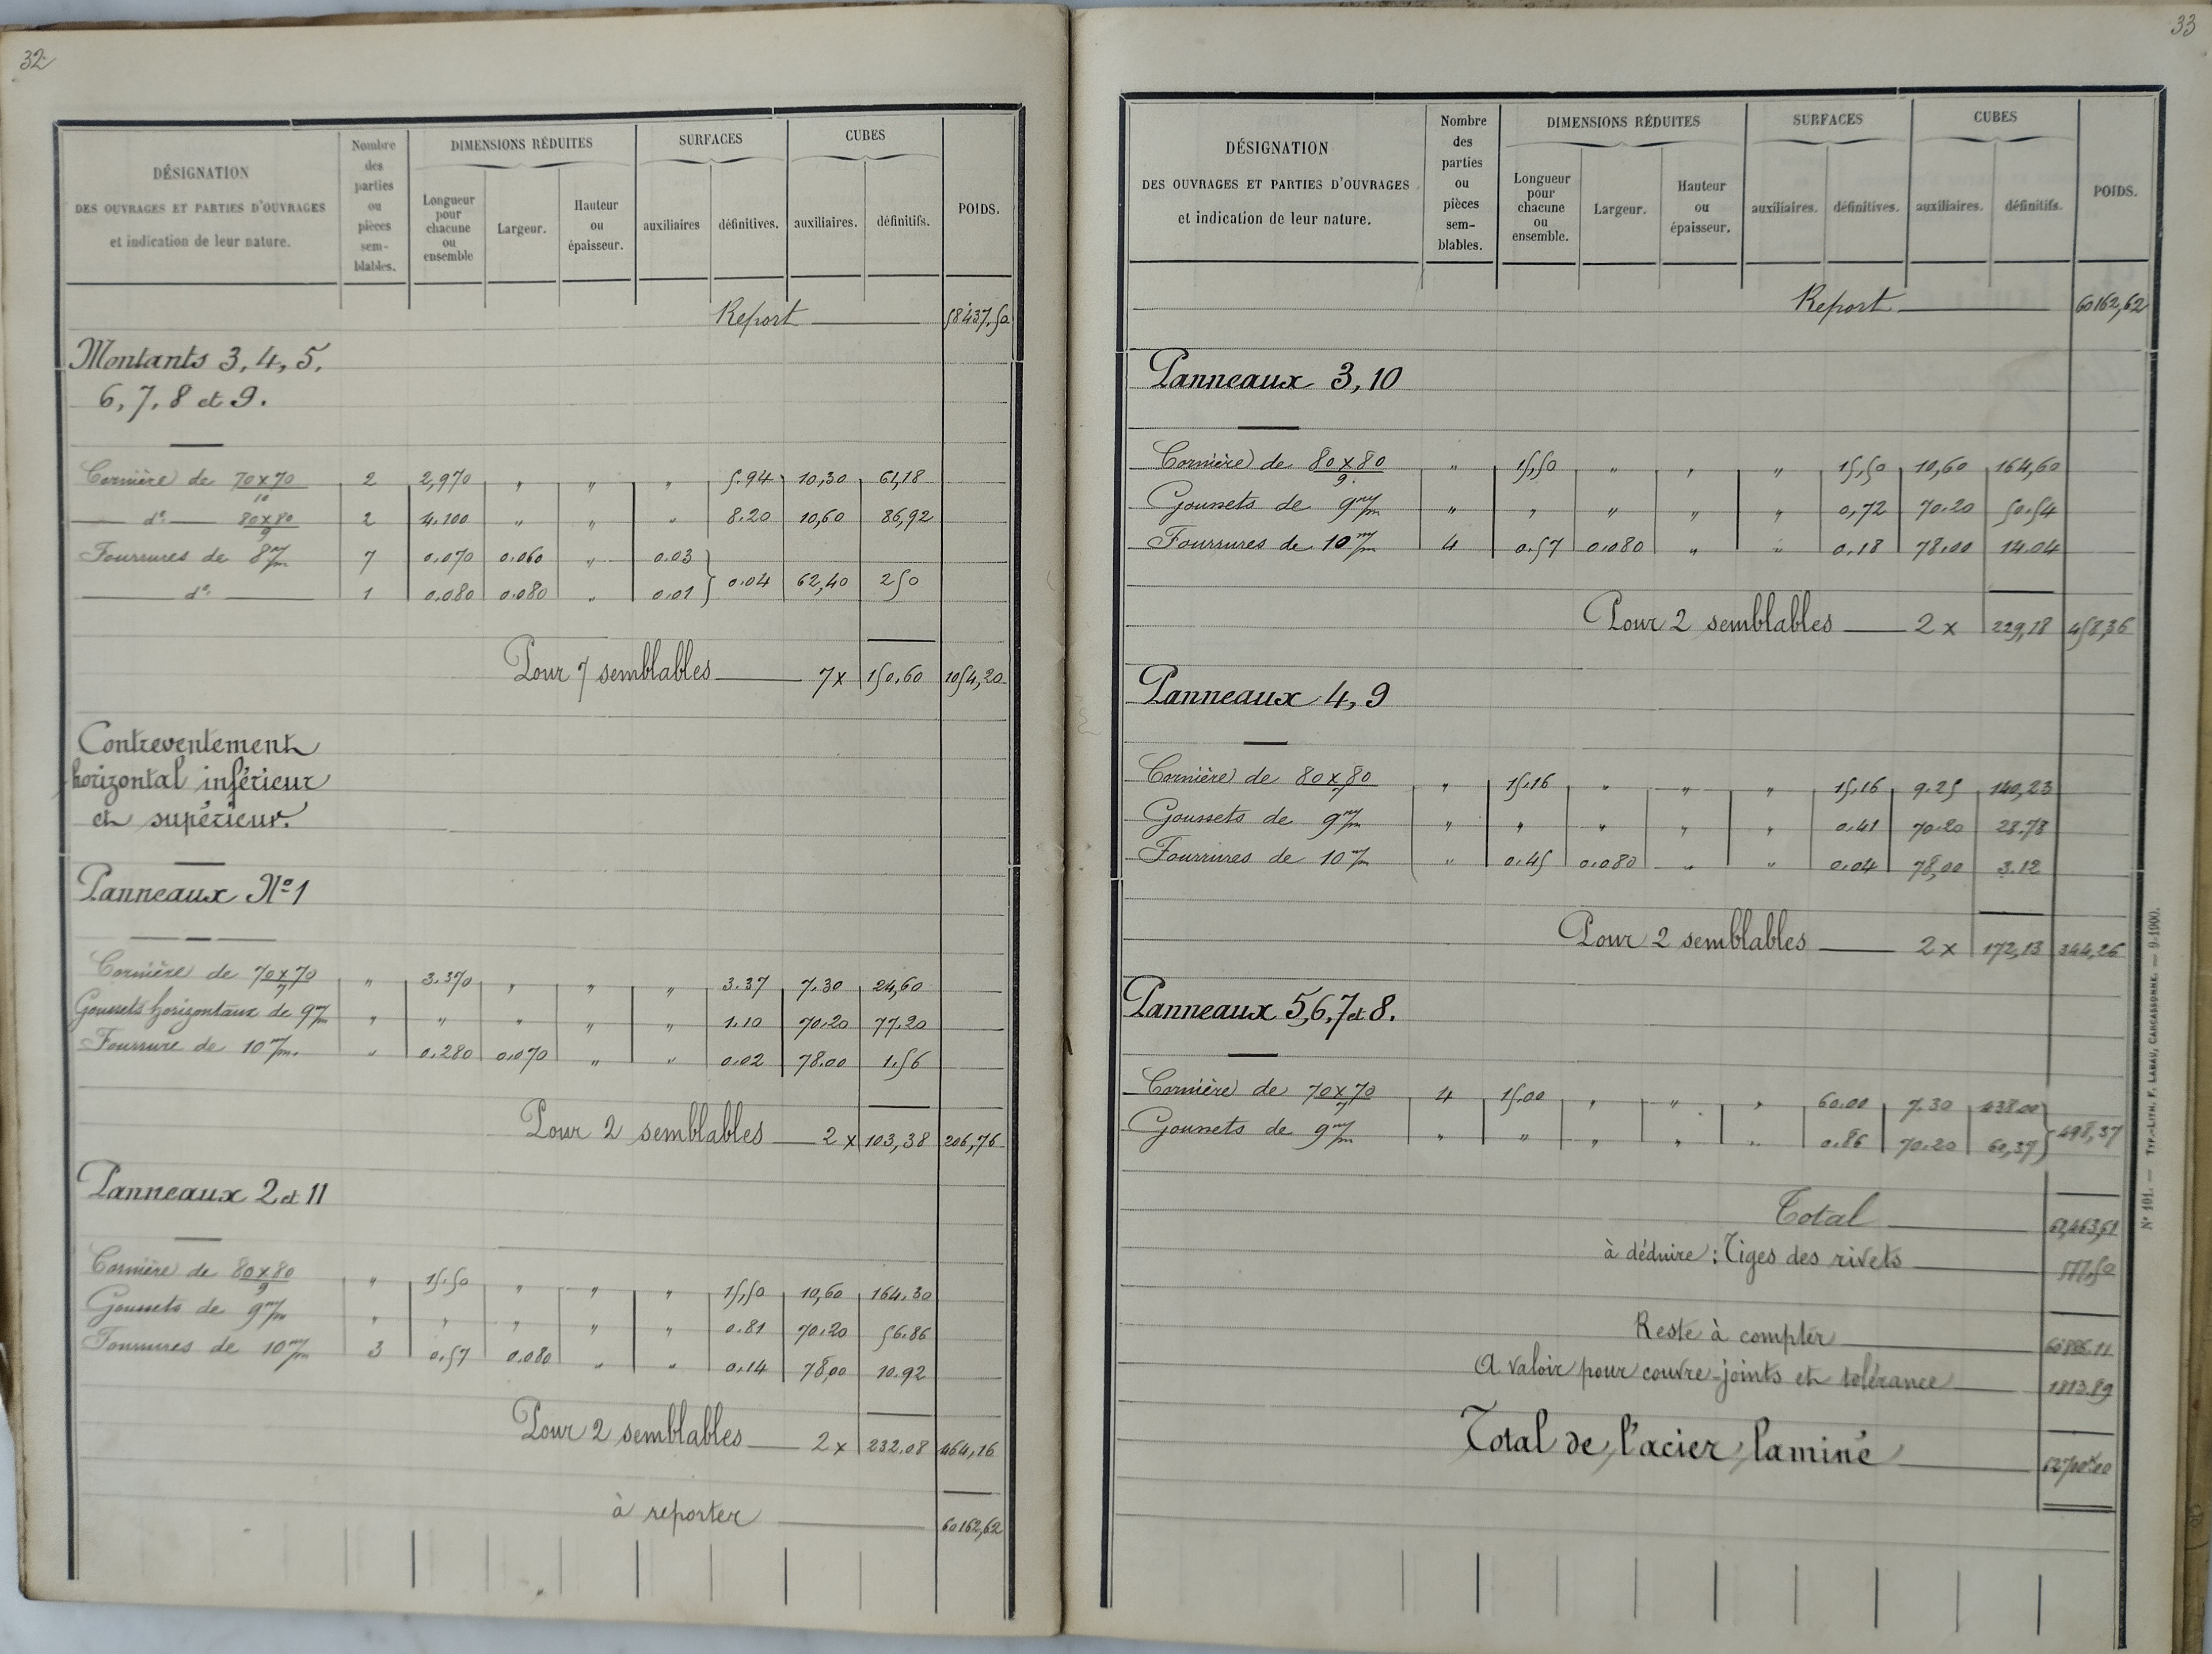 32
DÉSIGNATION
DES OUVRAGES ET PARTIES D'OUVRAGES
et indication de leur nature.
Nombre des parties ou pièces sem-blables.
DIMENSIONS RÉDUITES
Longueur pour chacune ou ensemble
Largeur.
Hauteur ou épaisseur.
SURFACES
auxiliaires
définitives.
CUBES
auxiliaires.
définitifs.
POIDS.
Report 58437,50
Montants 3, 4, 5.
6, 7, 8 et 9.
Cornière de 70x70/10 2 2,970 " " " 5.94 10,30 61,18
d° 80x80/9 2 4.100 " " " 8.20 10,60 86,92
Fourrures de 8m/m 7 0.070 0.060 " 0.03
d° 1 0.080 0.080 " 0.01 } 0.04 62,40 250
Pour 7 semblables 7x 150.60 1054,20
Contreventement
horizontal inférieur
et supérieur.
Panneaux N° 1
Cornière de 70x70/7 " 3.370 " " " 3.37 7.30 24,60
Goussets horizontaux de 9m/m " " " " " 1.10 70.20 77.20
Fourrure de 10m/m. " 0.280 0.070 " " 0.02 78.00 1.56
Pour 2 semblables 2x 103,38 206,76
Panneaux 2 et 11
Cornière de 80x80/9 " 15.50 " " " 15,50 10,60 164.30
Goussets de 9m/m " " " " " 0.81 70.20 56.86
Fourrures de 10m/m 3 0.57 0.080 " " 0.14 78,00 10.92
Pour 2 semblables 2x 232.08 464,16
à reporter 60162,62
33
DÉSIGNATION
DES OUVRAGES ET PARTIES D'OUVRAGES
et indication de leur nature.
Nombre des parties ou pièces sem-blables.
DIMENSIONS RÉDUITES
Longueur pour chacune ou ensemble.
Largeur.
Hauteur ou épaisseur.
SURFACES
auxiliaires.
définitives.
CUBES
auxiliaires.
définitifs.
POIDS.
Report 60162,62
Panneaux 3, 10
Cornière de 80x80/9. " 15,50 " " " 15,50 10,60 164,60
Goussets de 9m/m " " " " " 0,72 70.20 50.54
Fourrures de 10m/m 4 0.57 0.080 " " 0,18 78.00 14.04
Pour 2 semblables 2x 229,18 458,36
Panneaux 4, 9
Cornière de 80x80/7 " 15.16 " " " 15,16 9.25 140,23
Goussets de 9m/m " " " " " 0.41 70.20 28.78
Fourrures de 10m/m " 0.45 0.080 " " 0.04 78,00 3.12
Pour 2 semblables 2x 172,13 344,26
Panneaux 5, 6, 7 et 8.
Cornière de 70x70/7 4 15.00 " " " 60.00 7.30 438.00
Goussets de 9m/m " " " " " 0.86 70.20 60,37 } 498,37
Total 61,463,61
à déduire : Tiges des rivets 577,50
Reste à compter 60886.11
A valoir pour couvre-joints et tolérance 1813.89
Total de l'acier laminé 62700k00
N° 101. — TYP.-LITH. F. LABAU, CARCASSONNE. — 9-1900.